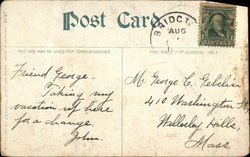 Post Card
BRIDGT
AUG
THIS SIDE MAY BE USED FOR CORRESPONDENCE
THIS SIDE FOR ADDRESS ONLY
Friend George.
Taking my
vacation up here
for a change.
John.
Mr. George C. Gebelein
410 Washington
Wellesley Hills,
Mass